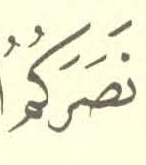 نَصَرَكُمُ